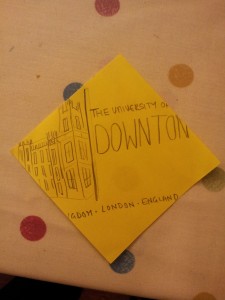 THE UNIVERSITY OF
DOWNTON
LONDON - ENGLAND